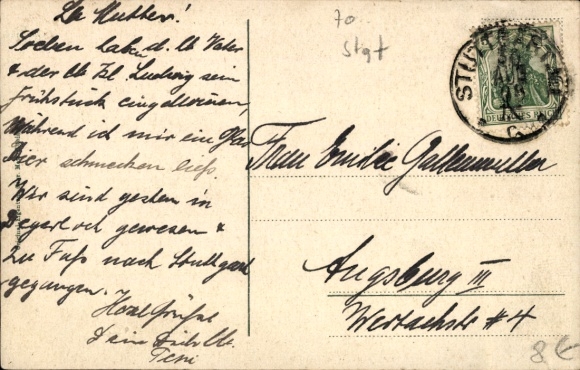 Lb. Mutter!
Soeben haben d. lb. Vater
& der lb. Ludwig sein
Frühstück eingenommen,
Während ich mir ein Glas
Bier schmecken ließ.
Wir sind gestern in
Degerloch gewesen &
zu Fuß nach Stuttgart
gegangen.
Herzl. Grüße
Dein
70
Stgt
STUTTGART
DEUTSCHES REICH
Frau Emilie Gallenmüller
Augsburg III
Wertachstr # 4
8 €